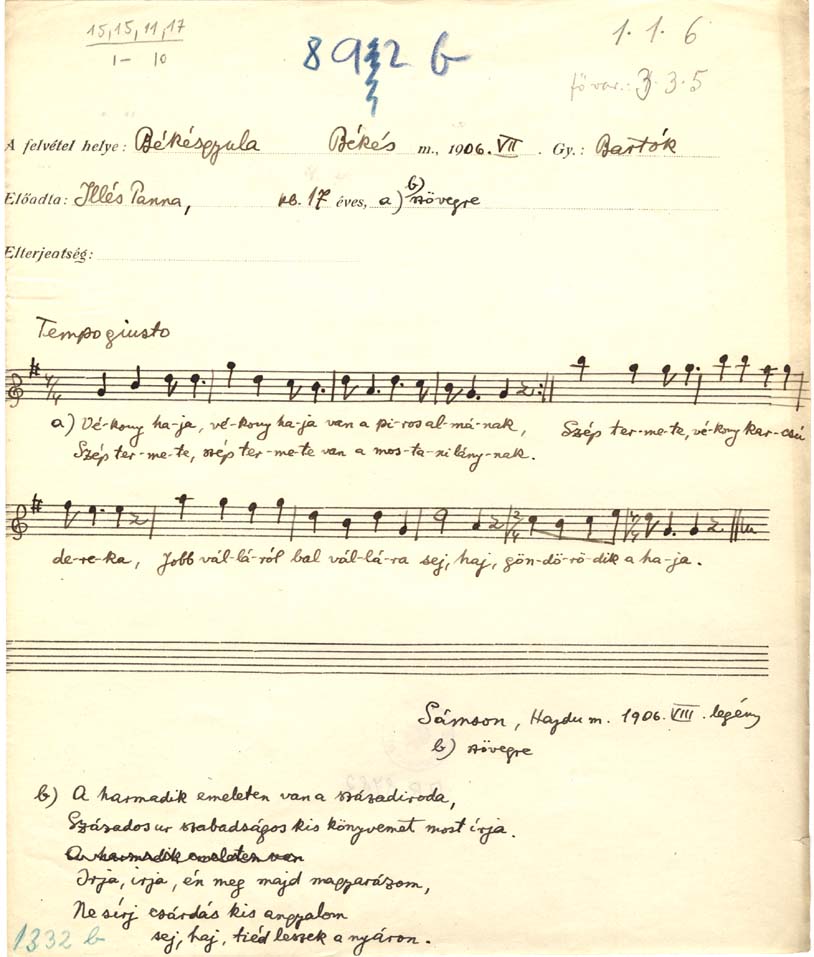 15, 15, 11, 17
1- 10
8912 b
1. 1. 6
fővar.: 3. 3. 5
A felvétel helye: Békésgyula Békés m., 1906. VII. Gy.: Bartók
Előadta: Illés Panna, kb. 17 éves, a) b) szövegre
Elterjedtség:
Tempo giusto
4/4
a) Vé-kony ha-ja, vé-kony ha-ja van a pi-ros al-má-nak, Szép ter-me-te, vé-kony kar-csú
Szép ter-me-te, szép ter-me-te van a mos-ta-ni lány-nak.
2/4 4/4
de-re-ka, Jobb vál-lá-ról bal vál-lá-ra sej, haj, gön-dö-rö-dik a ha-ja.
Sámson, Hajdu m. 1906. VIII. legény
b) szövegre
b) A harmadik emeleten van a századiroda,
Százados ur szabadságos kis könyvemet most irja.
A harmadik emeleten van
Irja, irja, én meg majd magyarázom,
Ne sírj csárdás kis angyalom
sej, haj, tiéd leszek a nyáron.
1332 b